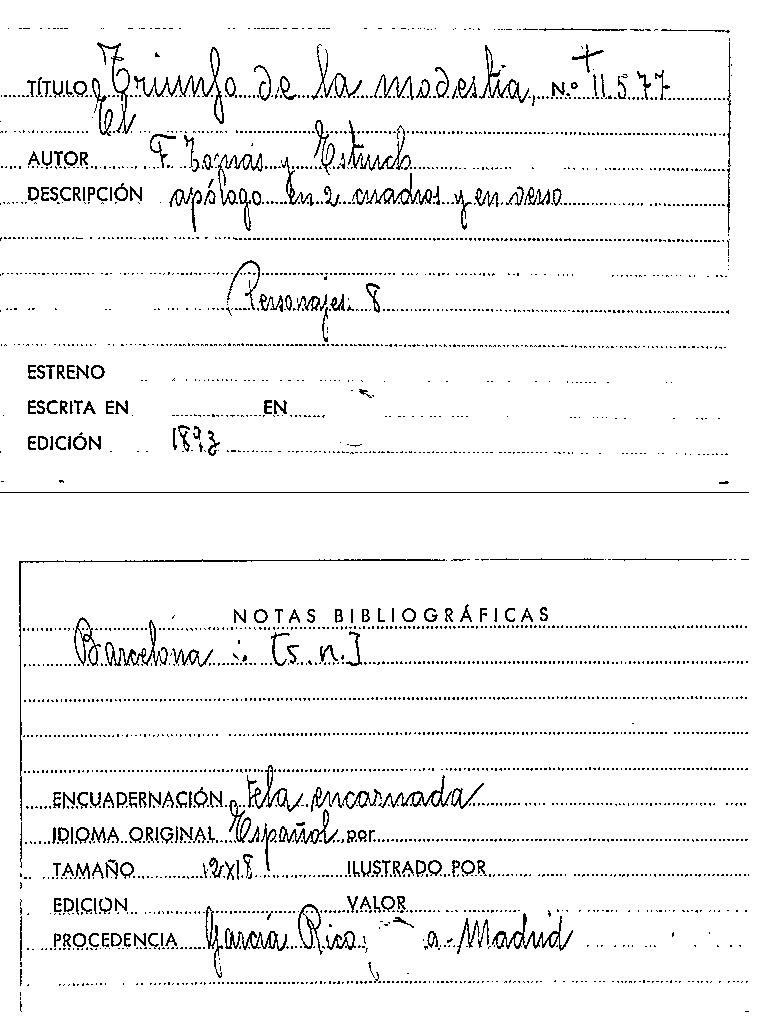 TÍTULO Triunfo de la modestia, N.º 11.577
El
AUTOR F. Tomás y Estruch
DESCRIPCIÓN apólogo en 2 cuadros y en verso
Personajes: 8
ESTRENO
ESCRITA EN EN
EDICIÓN 1893
NOTAS BIBLIOGRÁFICAS
Barcelona : [s. n.]
ENCUADERNACIÓN tela encarnada
IDIOMA ORIGINAL Español por
TAMAÑO 12x18 ILUSTRADO POR
EDICION VALOR
PROCEDENCIA García Rico, a - Madrid